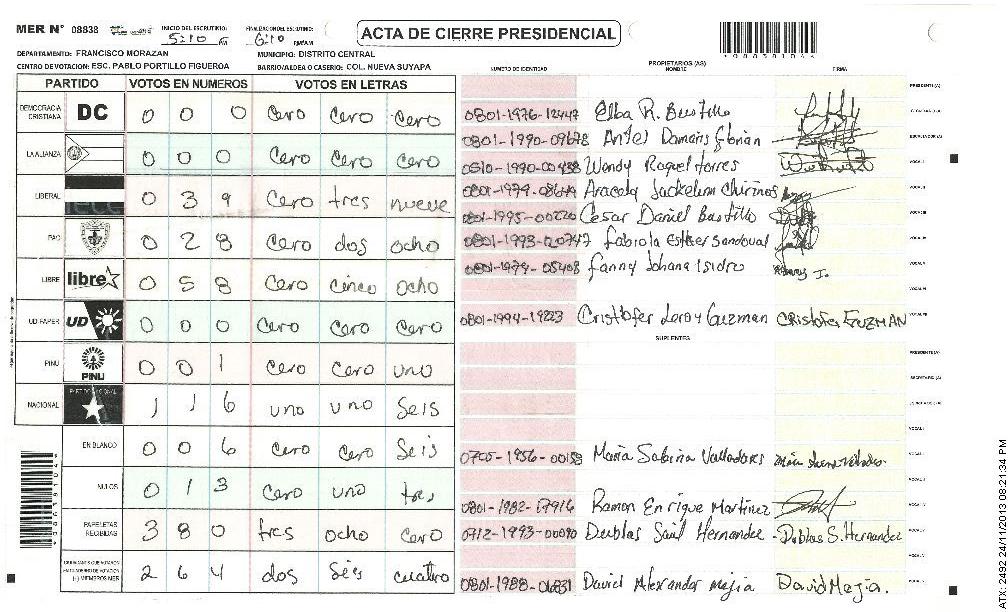 MER N° 08838
INICIO DEL ESCRUTINIO: 5:10 PM
FINALIZACION DEL ESCUTINIO: 6:10 PM/AM
ACTA DE CIERRE PRESIDENCIAL
DEPARTAMENTO: FRANCISCO MORAZAN
MUNICIPIO: DISTRITO CENTRAL
CENTRO DE VOTACION: ESC. PABLO PORTILLO FIGUEROA
BARRIO/ALDEA O CASERIO: COL. NUEVA SUYAPA
PARTIDO VOTOS EN NUMEROS VOTOS EN LETRAS
DEMOCRACIA CRISTIANA DC 0 0 0 Cero Cero Cero
LA ALIANZA 0 0 0 Cero Cero Cero
LIBERAL 0 3 9 Cero tres nueve
PAC 0 2 8 Cero dos ocho
LIBRE libre 0 5 8 Cero cinco ocho
UD FAPER UD 0 0 0 Cero Cero Cero
PINU PINU 0 0 1 Cero Cero uno
NACIONAL PARTIDO NACIONAL 1 1 6 uno uno Seis
EN BLANCO 0 0 6 Cero Cero Seis
NULOS 0 1 3 Cero uno tres
PAPELETAS RECIBIDAS 3 8 0 tres ocho Cero
CIUDADANOS QUE VOTARON EN CUADERNO DE VOTACION (+) MIEMBROS MER 2 6 4 dos Séis cuatro
NUMERO DE IDENTIDAD PROPIETARIOS (AS) NOMBRE FIRMA
PRESIDENTE(A)
0801-1976-12447 Elba R. Bustillo
0801-1990-09678 Antel Damaris florian
0510-1990-00438 Wendy Raquel torres
VOCAL I
0801-1979-08649 Aracely Jackelinn Chirinos
VOCAL II
0801-1995-00220 Cesar Daniel Bustillo
VOCAL III
0801-1993-20747 fabiola Esther Sandoval
0801-1979-05408 fanny Johana Isidro
0801-1994-19223 Cristofer Leroy Guzman CRISTOFER GUZMAN
SUPLENTES
PRESIDENTE(A)
SECRETARIO(A)
VOCAL I
0705-1956-00153 María Sabina Valladores
0801-1982-07916 Ramon Enrique Martinez
0712-1993-00090 Dublas Saúl Hernandez Dublas S. Hernandez
0801-1988-06831 David Alexander Mejia David Mejia.
ATX-2492 24/11/2013 08:21:34 PM